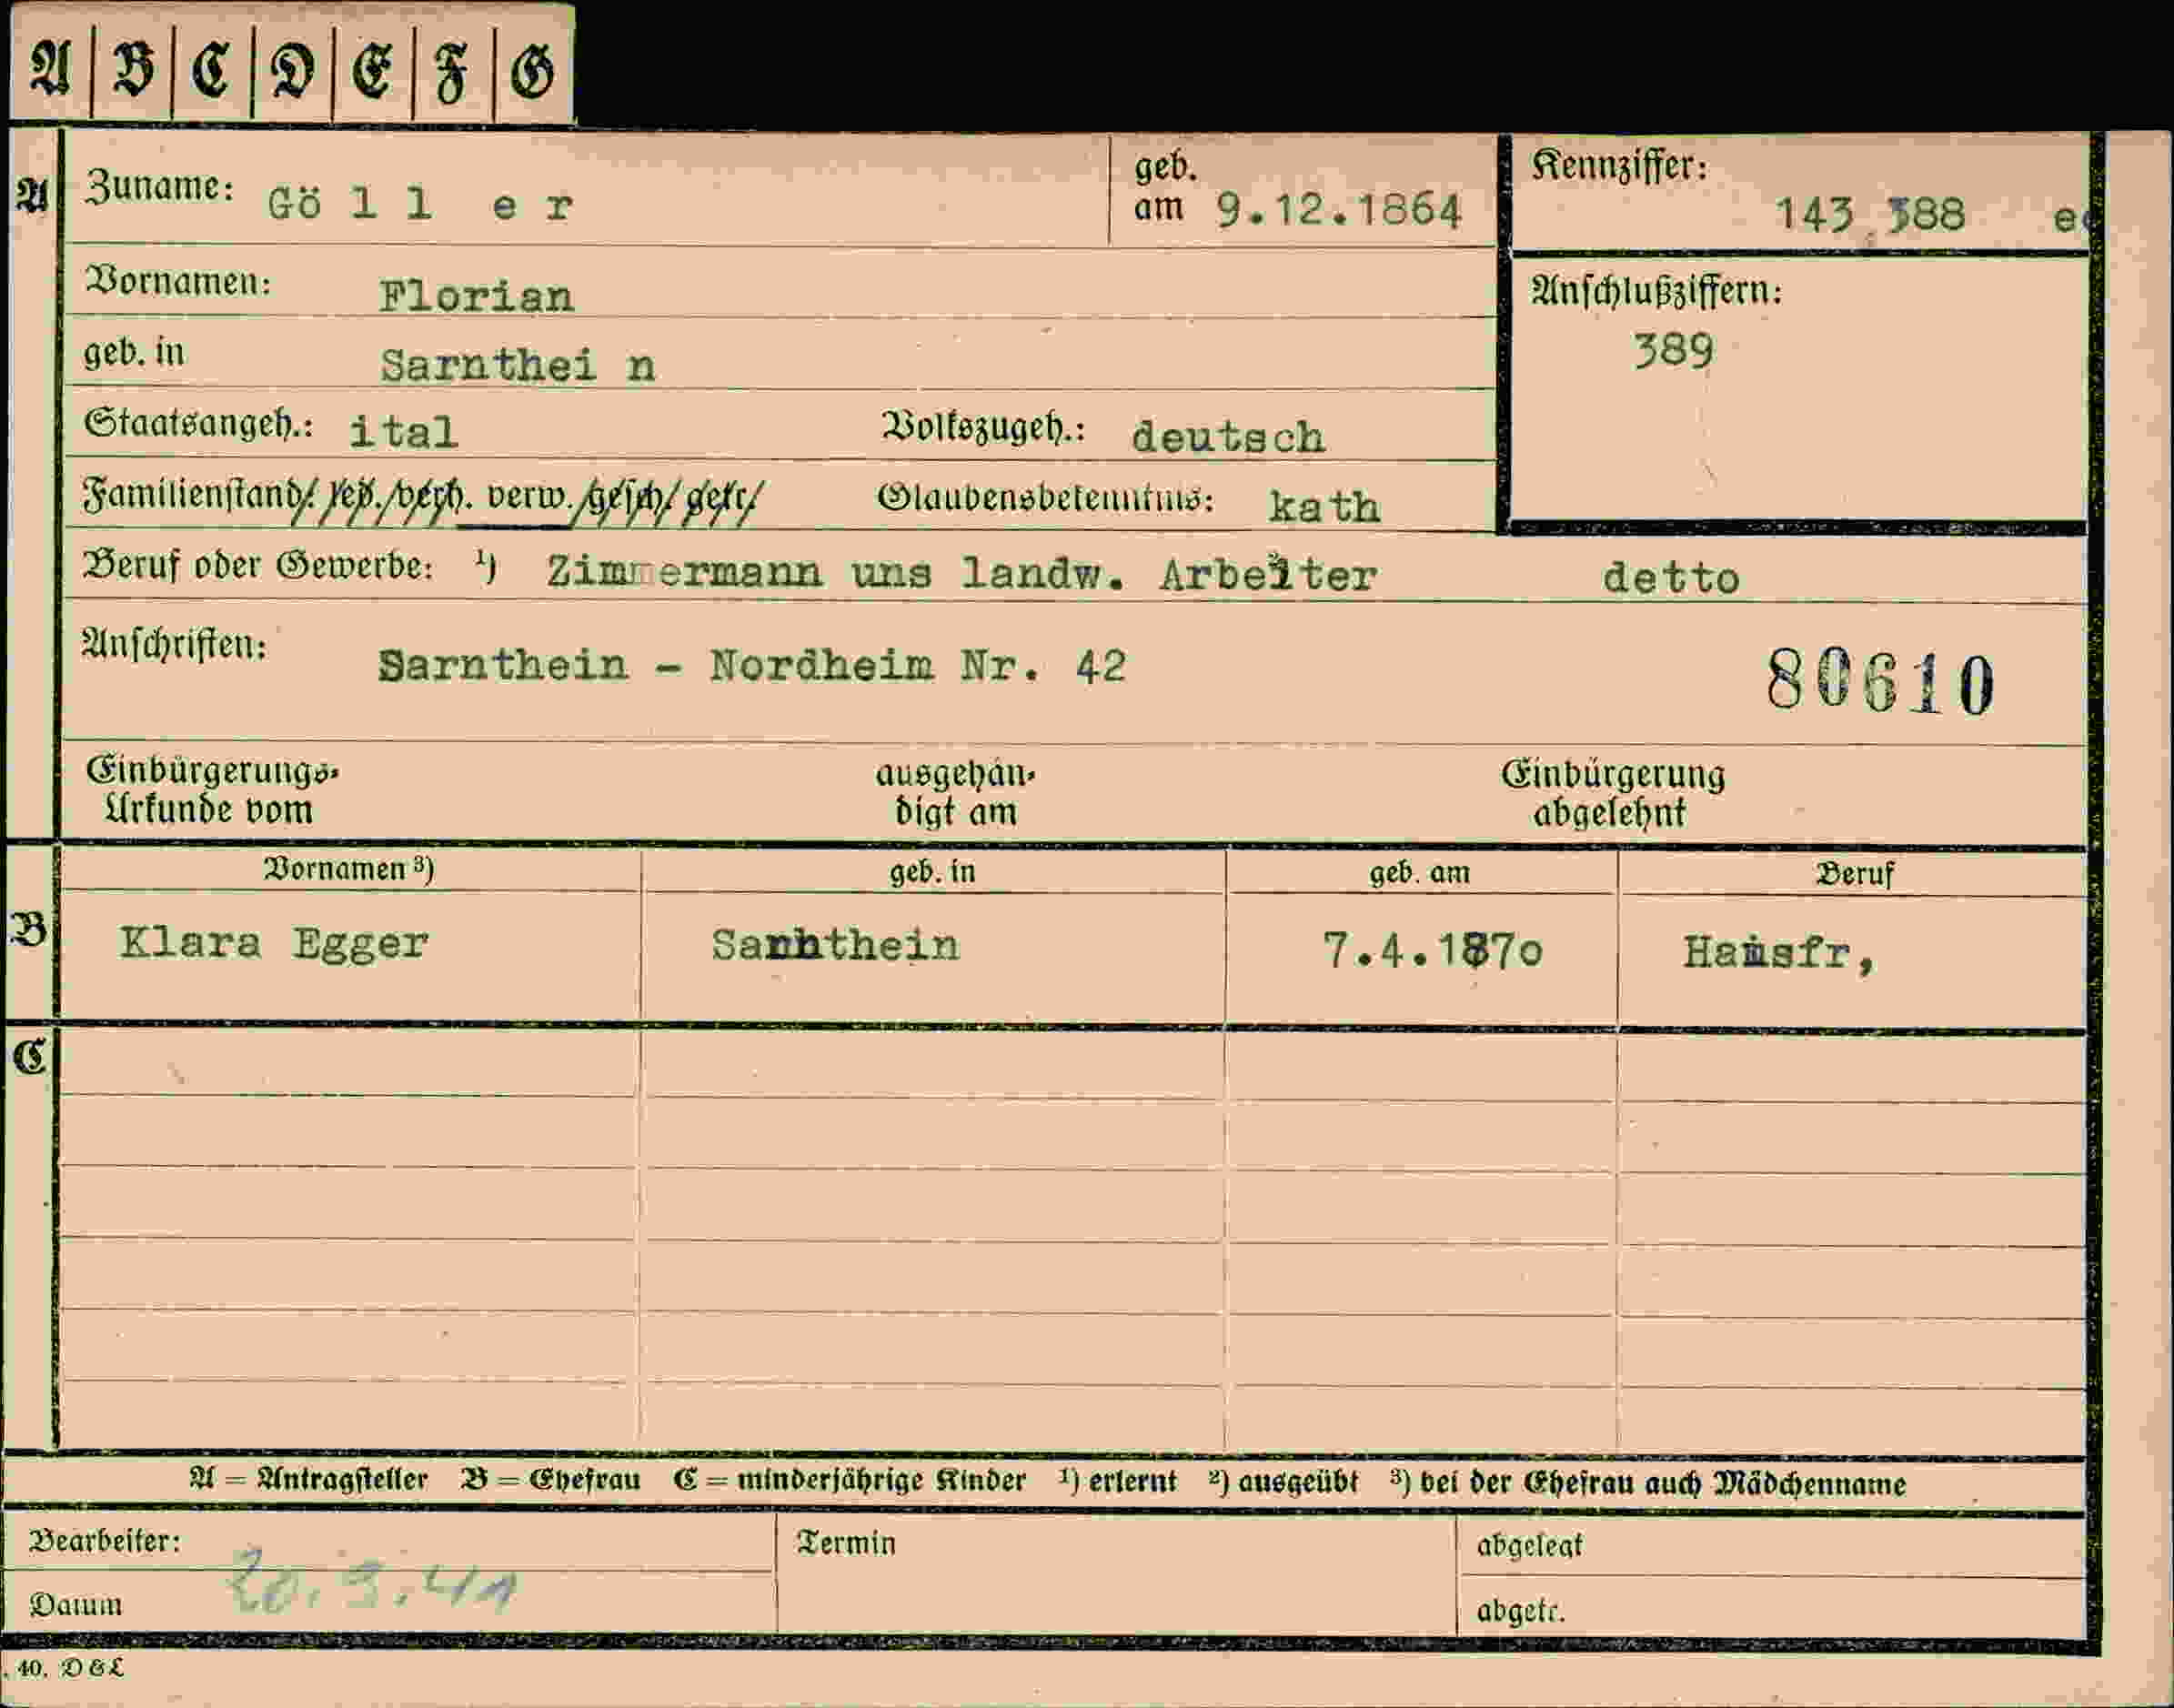 A B C D E F G
A Zuname: Gö l l e r geb. am 9.12.1864 Kennziffer: 143 388
Vornamen: Florian Anschlußziffern:
geb. in Sarnthei n 389
Staatsangeh.: ital Volkszugeh.: deutsch
Familienstand: led. verh. verw. gesch. getr. Glaubensbekenntnis: kath
Beruf oder Gewerbe: ¹) Zimmermann uns landw. Arbeiter detto
Anschriften: Sarnthein - Nordheim Nr. 42 80610
Einbürgerungs- ausgehän- Einbürgerung
Urkunde vom digt am abgelehnt
Vornamen ³) geb. in geb. am Beruf
B Klara Egger Sarnthein 7.4.1870 Hausfr,
C
A = Antragsteller B = Ehefrau C = minderjährige Kinder ¹) erlernt ²) ausgeübt ³) bei der Ehefrau auch Mädchenname
Bearbeiter: Termin abgelegt
Datum 20.9.41 abgetr.
. 40. D & L